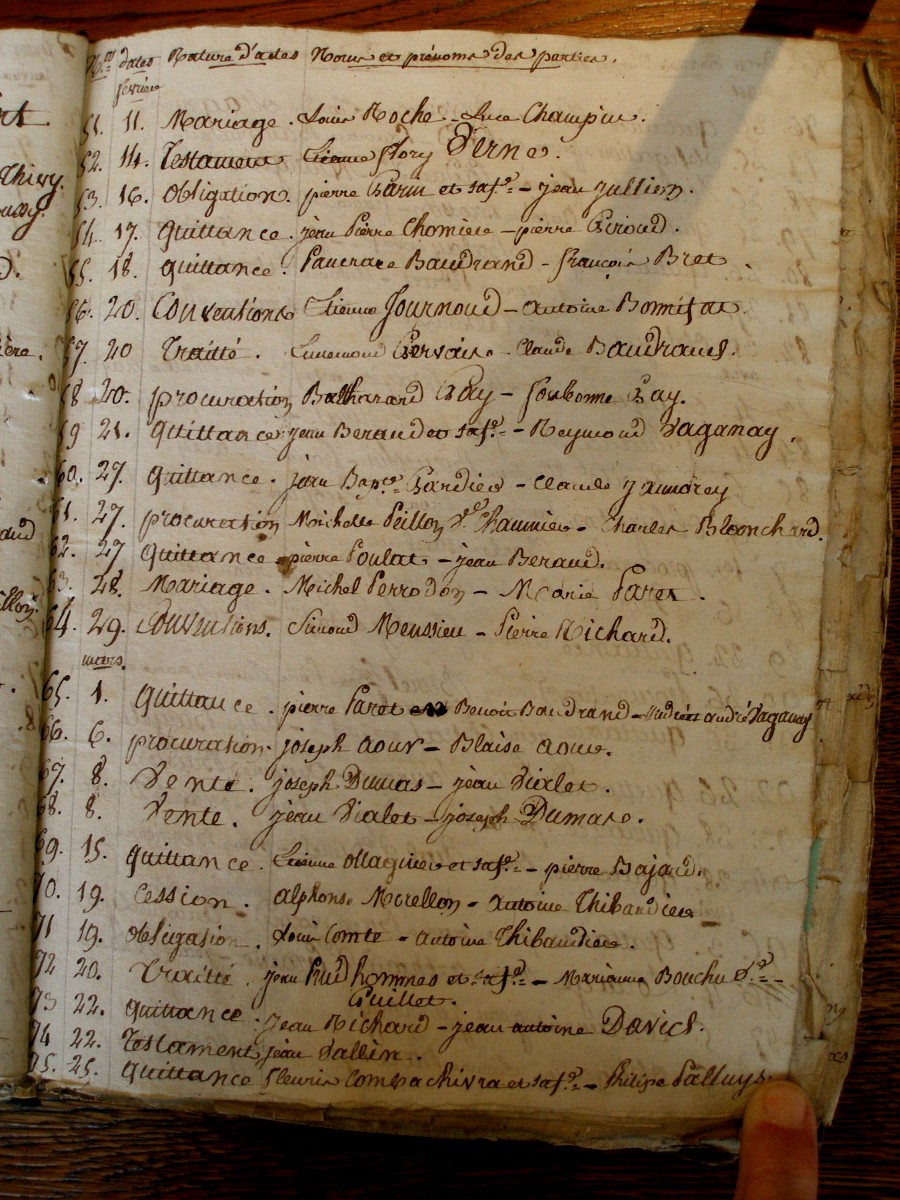 N.os dates Nature d'actes Noms et prénoms des parties.
février
51. 11. Mariage. Louis Roche - Luce Champin.
52. 14. Testament Etienne flory Verne.
53. 16. obligation. pierre Garin et sa f.e - jean jullien.
54. 17. quittance. jean Pierre Chomiere - pierre Giroud.
55. 18. quittance. Pancrace Baudrand - françois Bret.
56. 20. Conventions Etienne Journoud - antoine Bonnifat.
57. 20 Traitté. Ennemond Gervais - Claude Baudrand.
58 20. procuration Balthazard Gay - Gay.
59 21. quittance jean Beraud et sa f.e - Reymond Vaganay.
60. 27. quittance. jean Bap.te Gardier - Claude
61. 27. procuration Michelle Peillon V.e - Charles Blanchard.
62. 27 quittance - pierre Poulat - jean Beraud.
63. 28. Mariage. Michel Perrodon - Marie Paret.
64. 29. Conventions. Simond Meussieu - Pierre Richard.
mars.
65. 1. quittance. pierre Paret Benoit Baudrand - andré Vaganay
66. 6. procuration. joseph aour - Blaise aour.
67. 8. Vente. joseph Dumas - jean Vialet.
68. 8. Vente. jean Vialet - joseph Dumas.
69. 15. quittance. Etienne ollagnier et sa f.e - pierre Bajard.
70. 19. Cession. alphonse Morellon - antoine Thibaudier
71 19. obligation. Louis Comte - antoine Thibaudier.
72 20. Traitté. jean Prudhommes et sa f.e - Marianne Bouchu V.e -
Guillet.
73 22. quittance. jean Richard - jean antoine David.
74 22. Testament jean Vallin.
75. 25. quittance fleurie et sa f.e - Philipe Palluys.